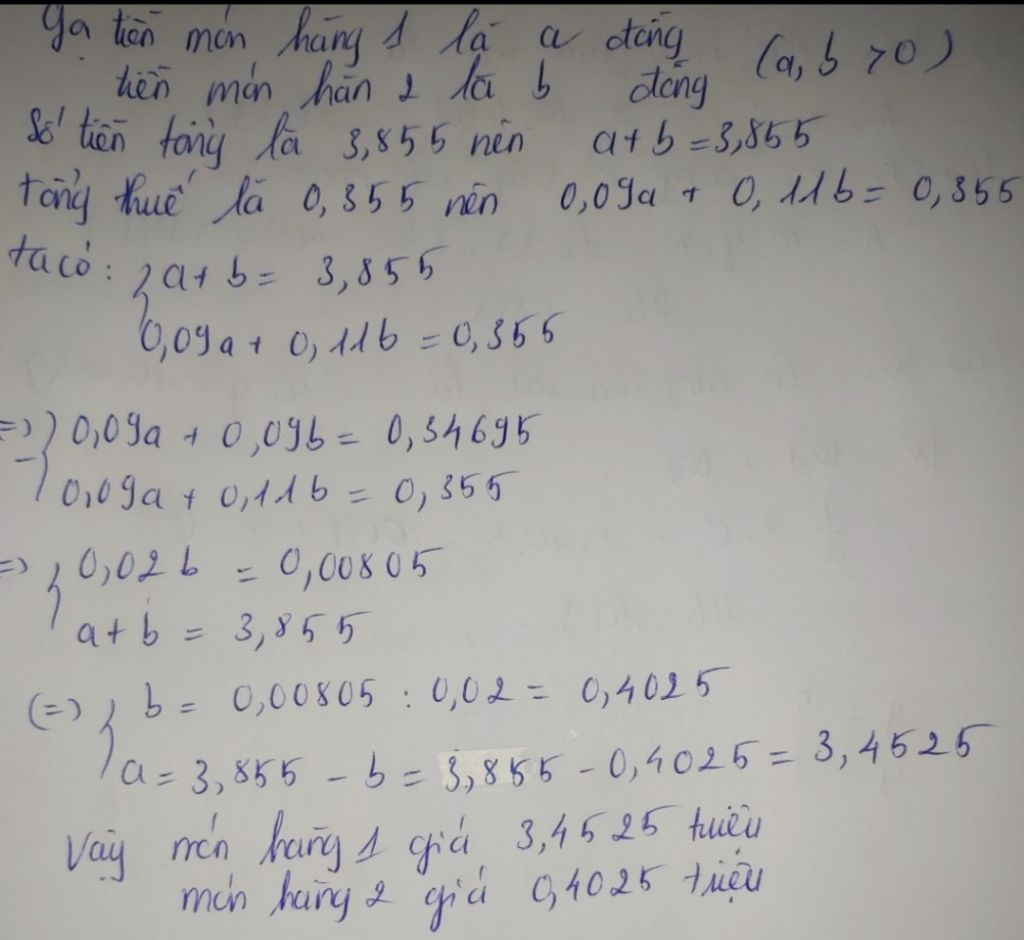 Gọi tiền món hàng 1 là a đồng
tiền món hàn 2 là b đồng (a, b > 0)
Số tiền tổng là 3,855 nên a + b = 3,855
tổng thuế là 0,355 nên 0,09a + 0,11b = 0,355
ta có: { a + b = 3,855
0,09a + 0,11b = 0,355
=> { 0,09a + 0,09b = 0,34695
- 0,09a + 0,11b = 0,355
=> { 0,02b = 0,00805
a + b = 3,855
(=) { b = 0,00805 : 0,02 = 0,4025
a = 3,855 - b = 3,855 - 0,4025 = 3,4525
Vậy món hàng 1 giá 3,4525 triệu
món hàng 2 giá 0,4025 triệu